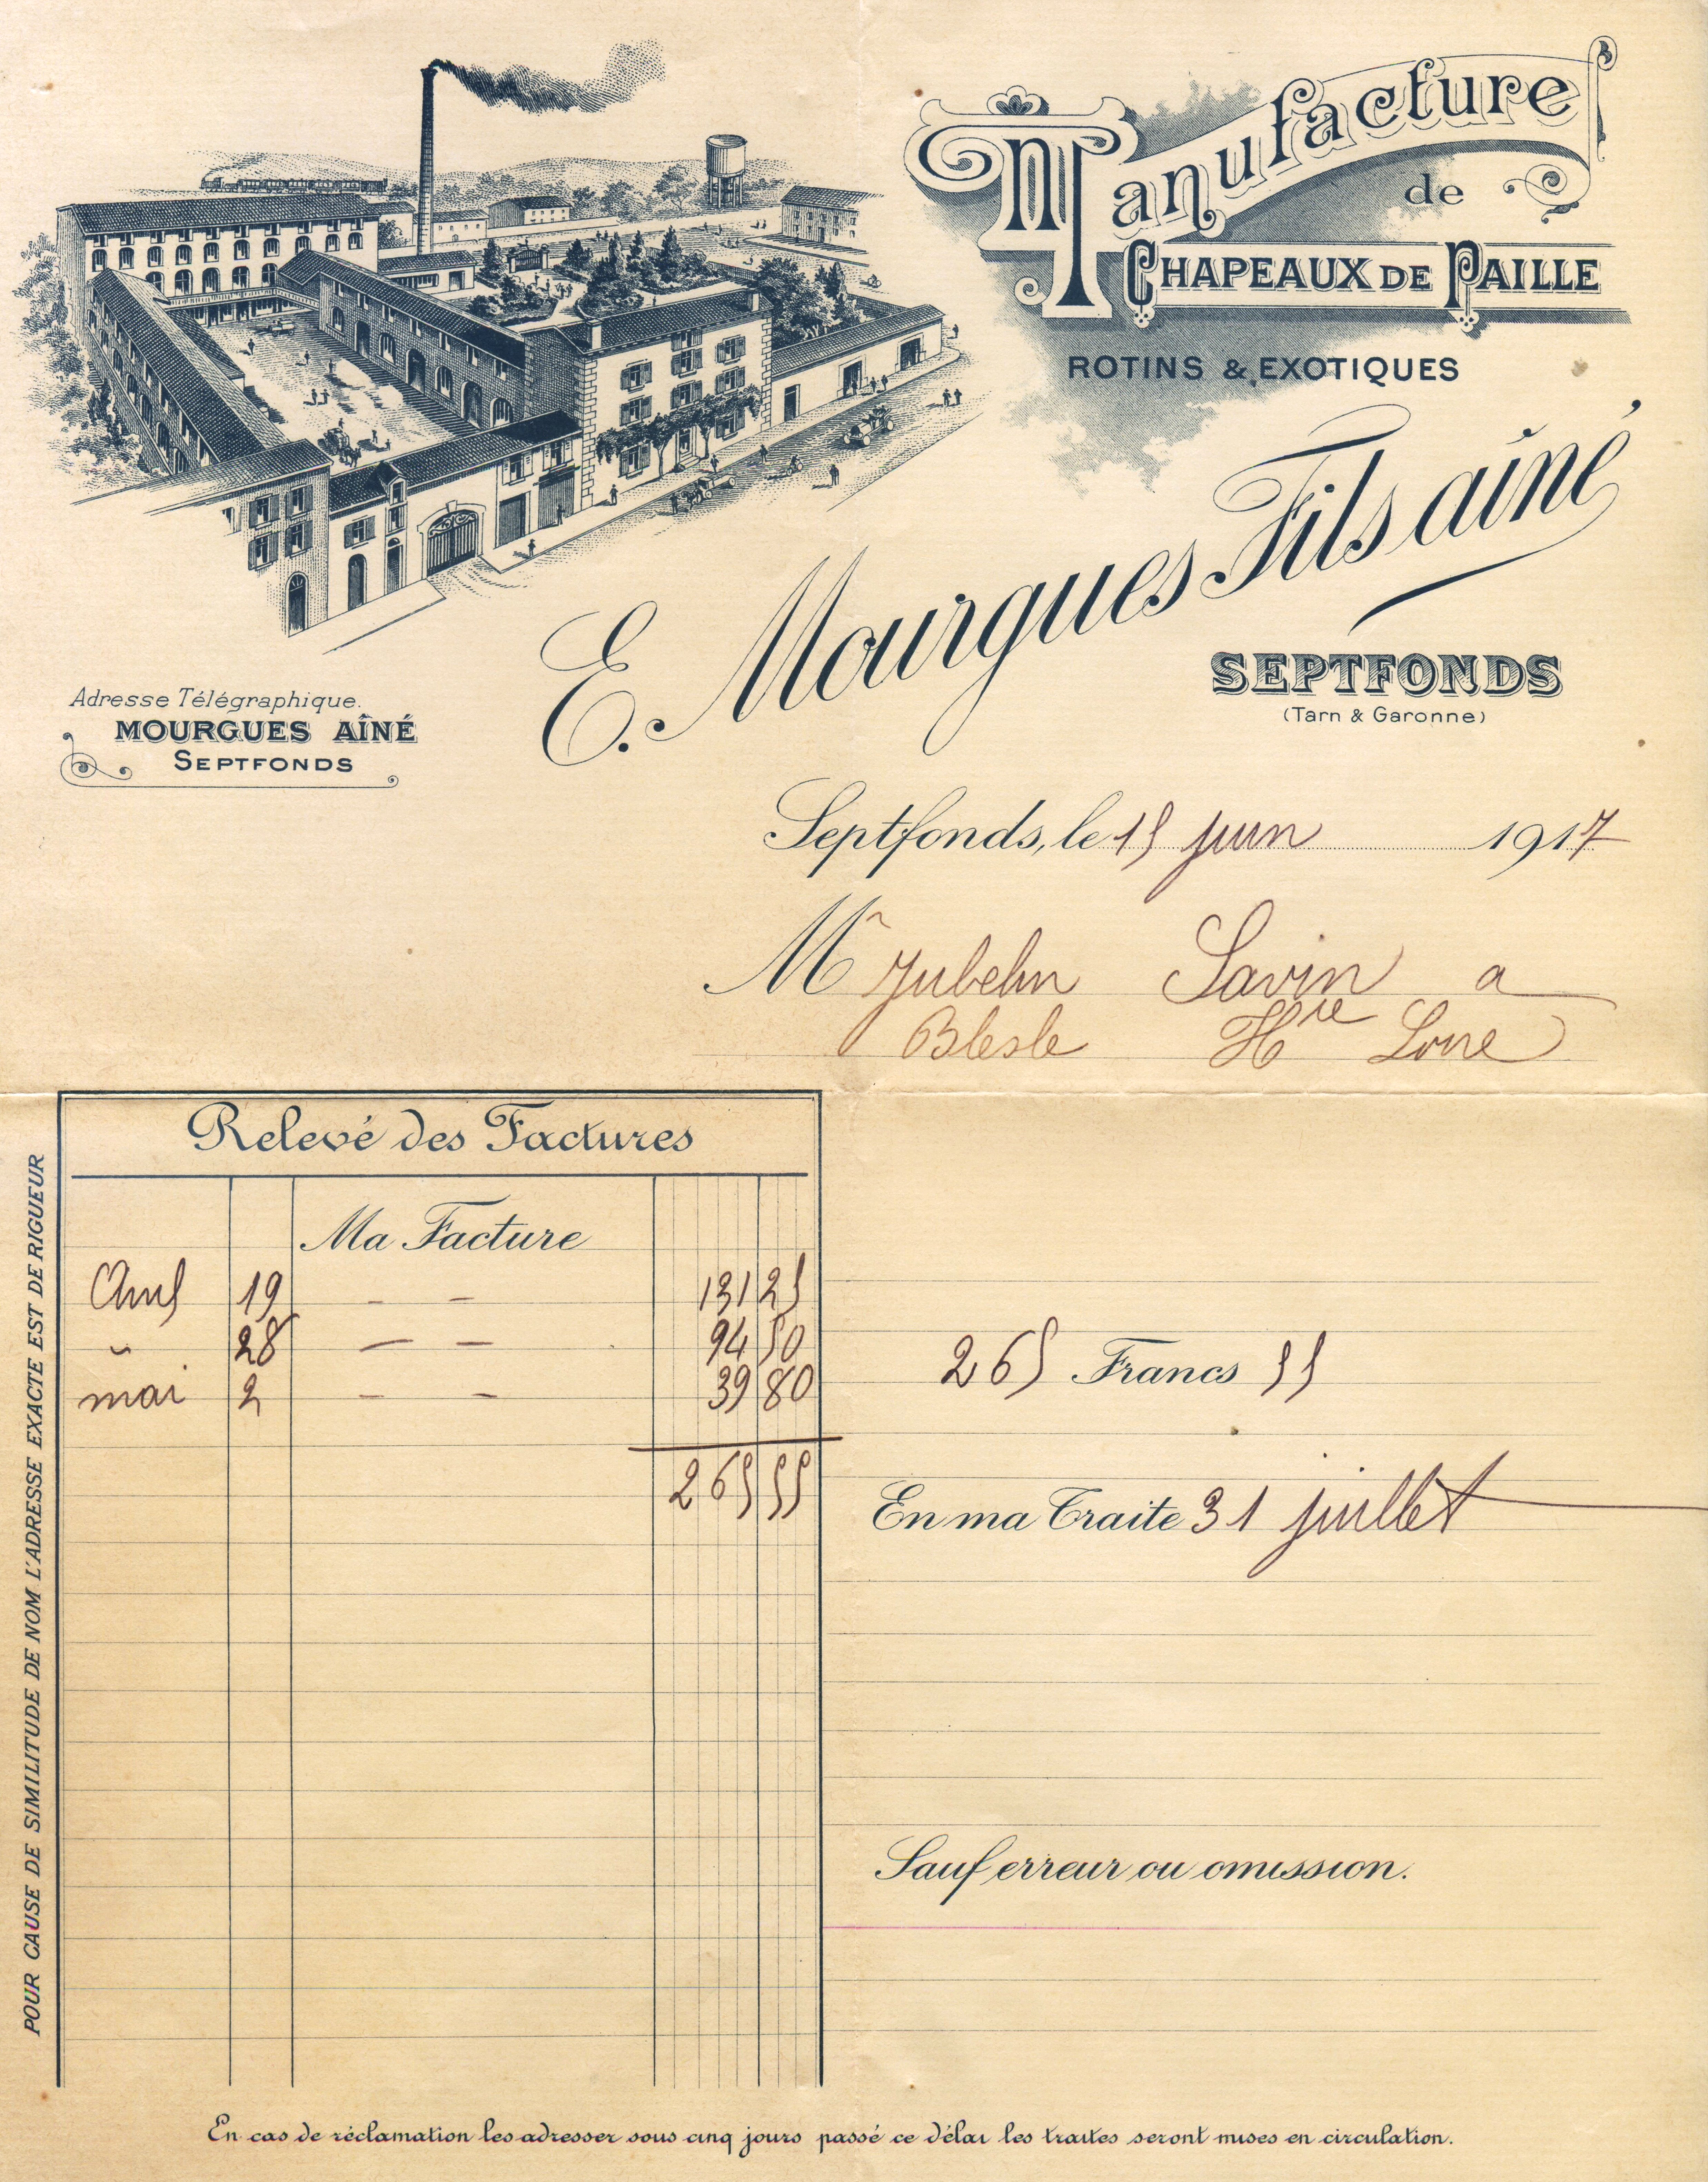 Manufacture
de
CHAPEAUX DE PAILLE
ROTINS & EXOTIQUES
E. Mourgues Fils aîné
SEPTFONDS
(Tarn & Garonne)
Adresse Télégraphique.
MOURGUES AÎNÉ
SEPTFONDS
Septfonds, le 15 juin 1917
Mr Jubelin Savin a
Blesle Hte Loire
Relevé des Factures
Ma Facture
Avril 19 — — 131 25
" 28 — — 94 50
mai 2 — — 39 80
265 55
265 Francs 55
En ma Traite 31 juillet
Sauf erreur ou omission.
POUR CAUSE DE SIMILITUDE DE NOM L'ADRESSE EXACTE EST DE RIGUEUR
En cas de réclamation les adresser sous cinq jours passé ce délai les traites seront mises en circulation.